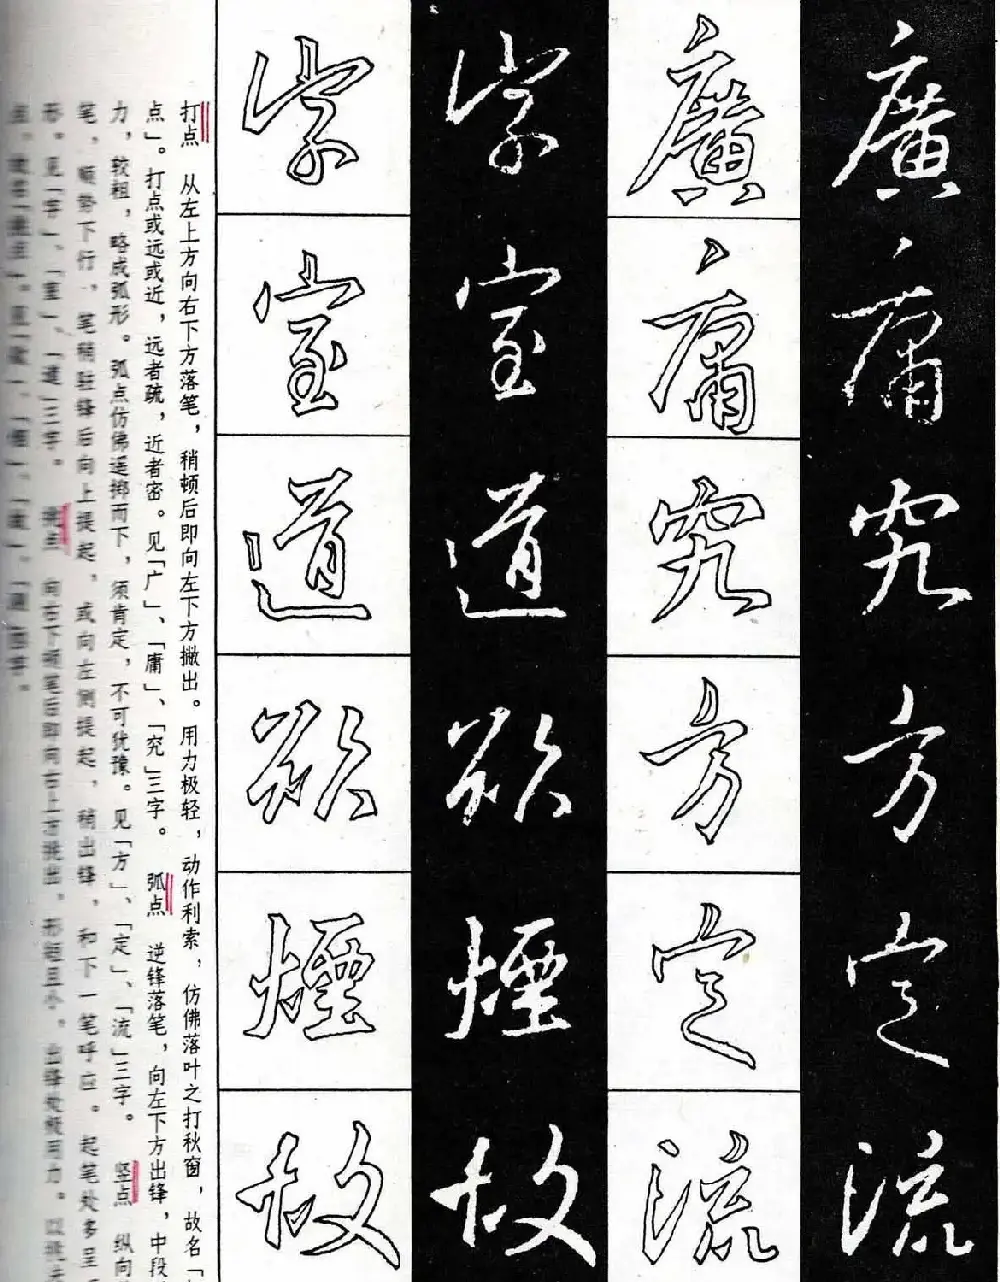 廣庸究方定流
廣庸究方定流
字室道欲煙故
字室道欲煙故
打点 从左上方向右下方落笔，稍顿后即向左下方撇出。用力极轻，动作利索，仿佛落叶之打秋窗，故名「
点」。打点或远或近，远者疏，近者密。见「广」、「庸」、「究」三字。 弧点 逆锋落笔，向左下方出锋，中段
力，较粗，略成弧形。弧点仿佛遥掷而下，须肯定，不可犹豫。见「方」、「定」、「流」三字。 竖点 纵向
笔，顺势下行，笔稍驻锋后向上提起，或向左侧提起，稍出锋，和下一笔呼应。起笔处多呈
形。见「字」、「室」、「道」三字。 挑点 向右下顿笔后即向右上方挑出，形短且小。出锋处须用力。以